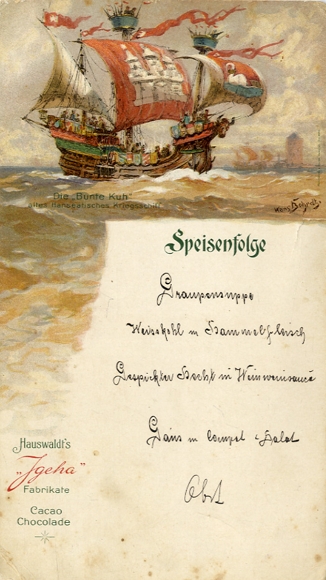 Die „Bunte Kuh"
altes hanseatisches Kriegsschiff
Hans Bohrdt
Speisenfolge
Graupensuppe
Weisskohl m Hammelfleisch
Gespickter Hecht in
Gans m Compot Salat
Obst
Hauswaldt's
„Jgeha"
Fabrikate
Cacao
Chocolade